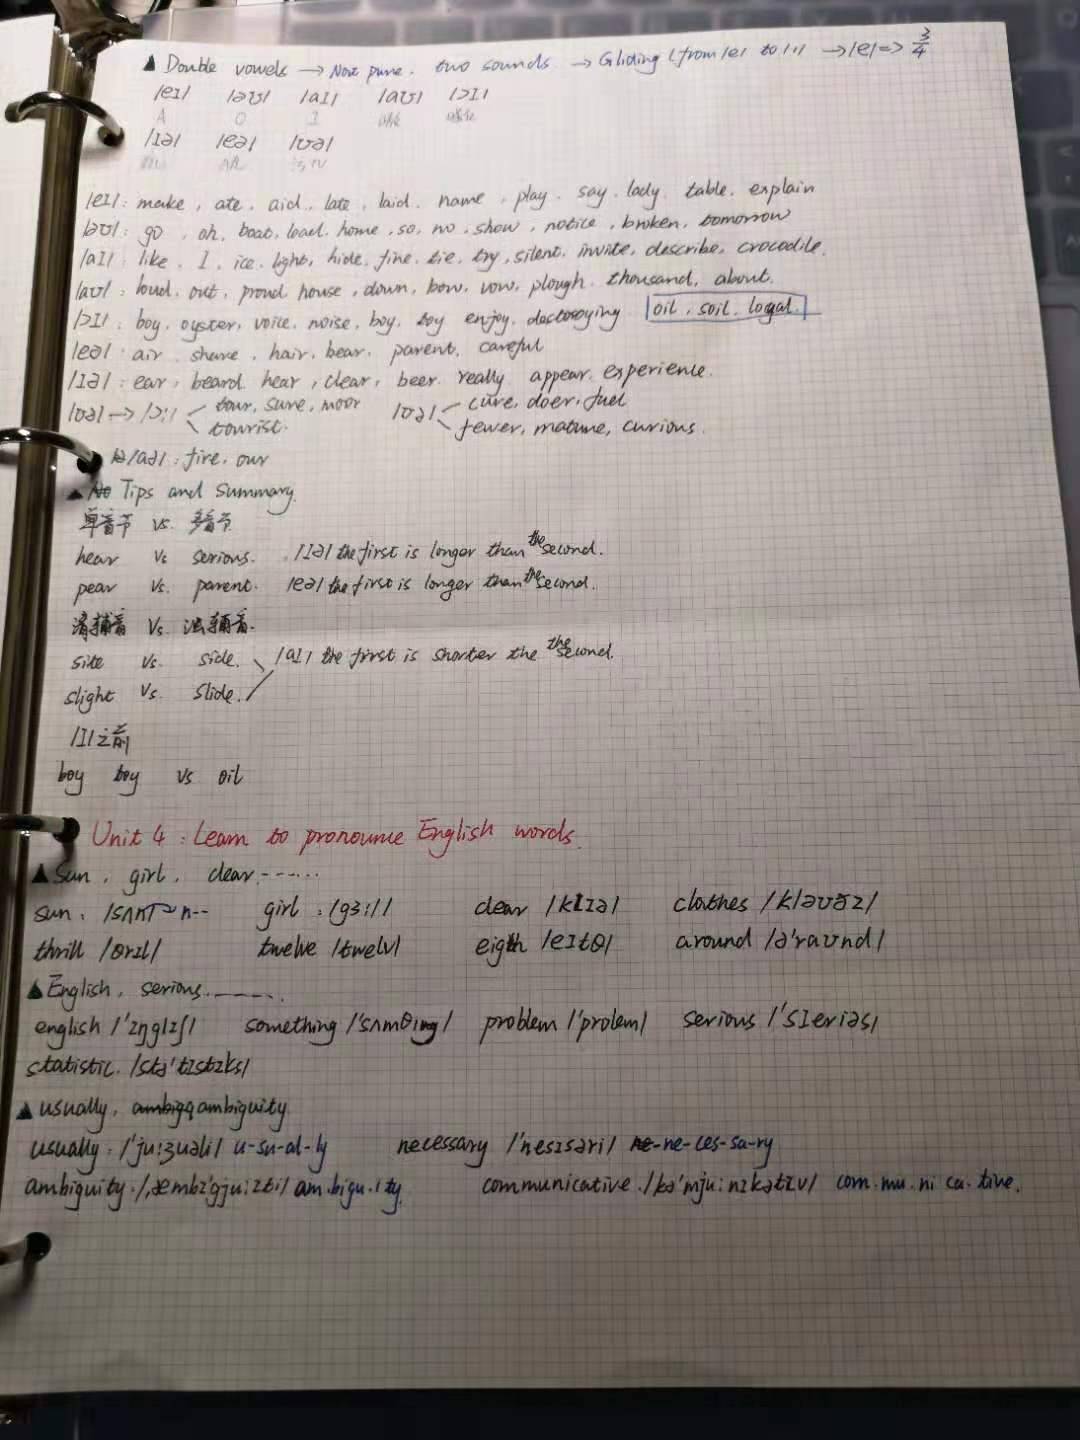 ▲ Double vowels → Not pure. two sounds → Gliding (from /e/ to /ɪ/) → /e/ => 3/4
/eɪ/ /əʊ/ /aɪ/ /aʊ/ /ɔɪ/
A O I
/ɪə/ /eə/ /ʊə/
/eɪ/: make, ate, aid, late, laid, name, play, say, lady, table, explain
/əʊ/: go, oh, boat, load, home, so, no, show, notice, broken, tomorrow
/aɪ/ like, I, ice, light, hide, fine, tie, try, silent, invite, describe, crocodile.
/aʊ/: loud, out, proud house, down, bow, vow, plough, thousand, about.
/ɔɪ/: boy, oyster, voice, noise, boy, toy enjoy, oil, soil,
/eə/: air share, hair, bear, parent, careful
/ɪə/: ear, beard hear, clear, beer really appear, experience.
/ʊə/ → /ɔ:/ tour, sure, moor /ʊə/ cure, doer, fuel
tourist. fewer, mature, curious.
/aə/: fire, our
▲ No Tips and Summary.
单音节 vs. 多音节
hear vs serious. /ɪə/ the first is longer than the second.
pear vs. parent. /eə/ the first is longer than the second.
清辅音 vs. 浊辅音.
site vs. side. /aɪ/ the first is shorter the the second.
slight vs. slide.
/ɪ/之前
boy toy vs oil
Unit 4: Learn to pronounce English words.
▲ Sun, girl, clear ------
sun: /sʌn/ n-- girl: /gɜ:l/ clear /klɪə/ clothes /kləʊðz/
thrill /θrɪl/ twelve /twelv/ eigth /eɪtθ/ around /ə'raʊnd/
▲ English, serious --------
english /'ɪŋglɪʃ/ something /'sʌmθɪŋ/ problem /'prolem/ serious /'sɪeriəs/
statistic. /stə'tɪstɪks/
▲ usually, ambigq ambiguity
usually: /'ju:ʒuəli/ u-su-al-ly necessary /'nesɪsəri/ ne-ne-ces-sa-ry
ambiguity. /,æmbɪ'gju:ɪti/ am.bigu.i ty. communicative. /kə'mju:nɪkətɪv/ com.mu.ni ca.tive.